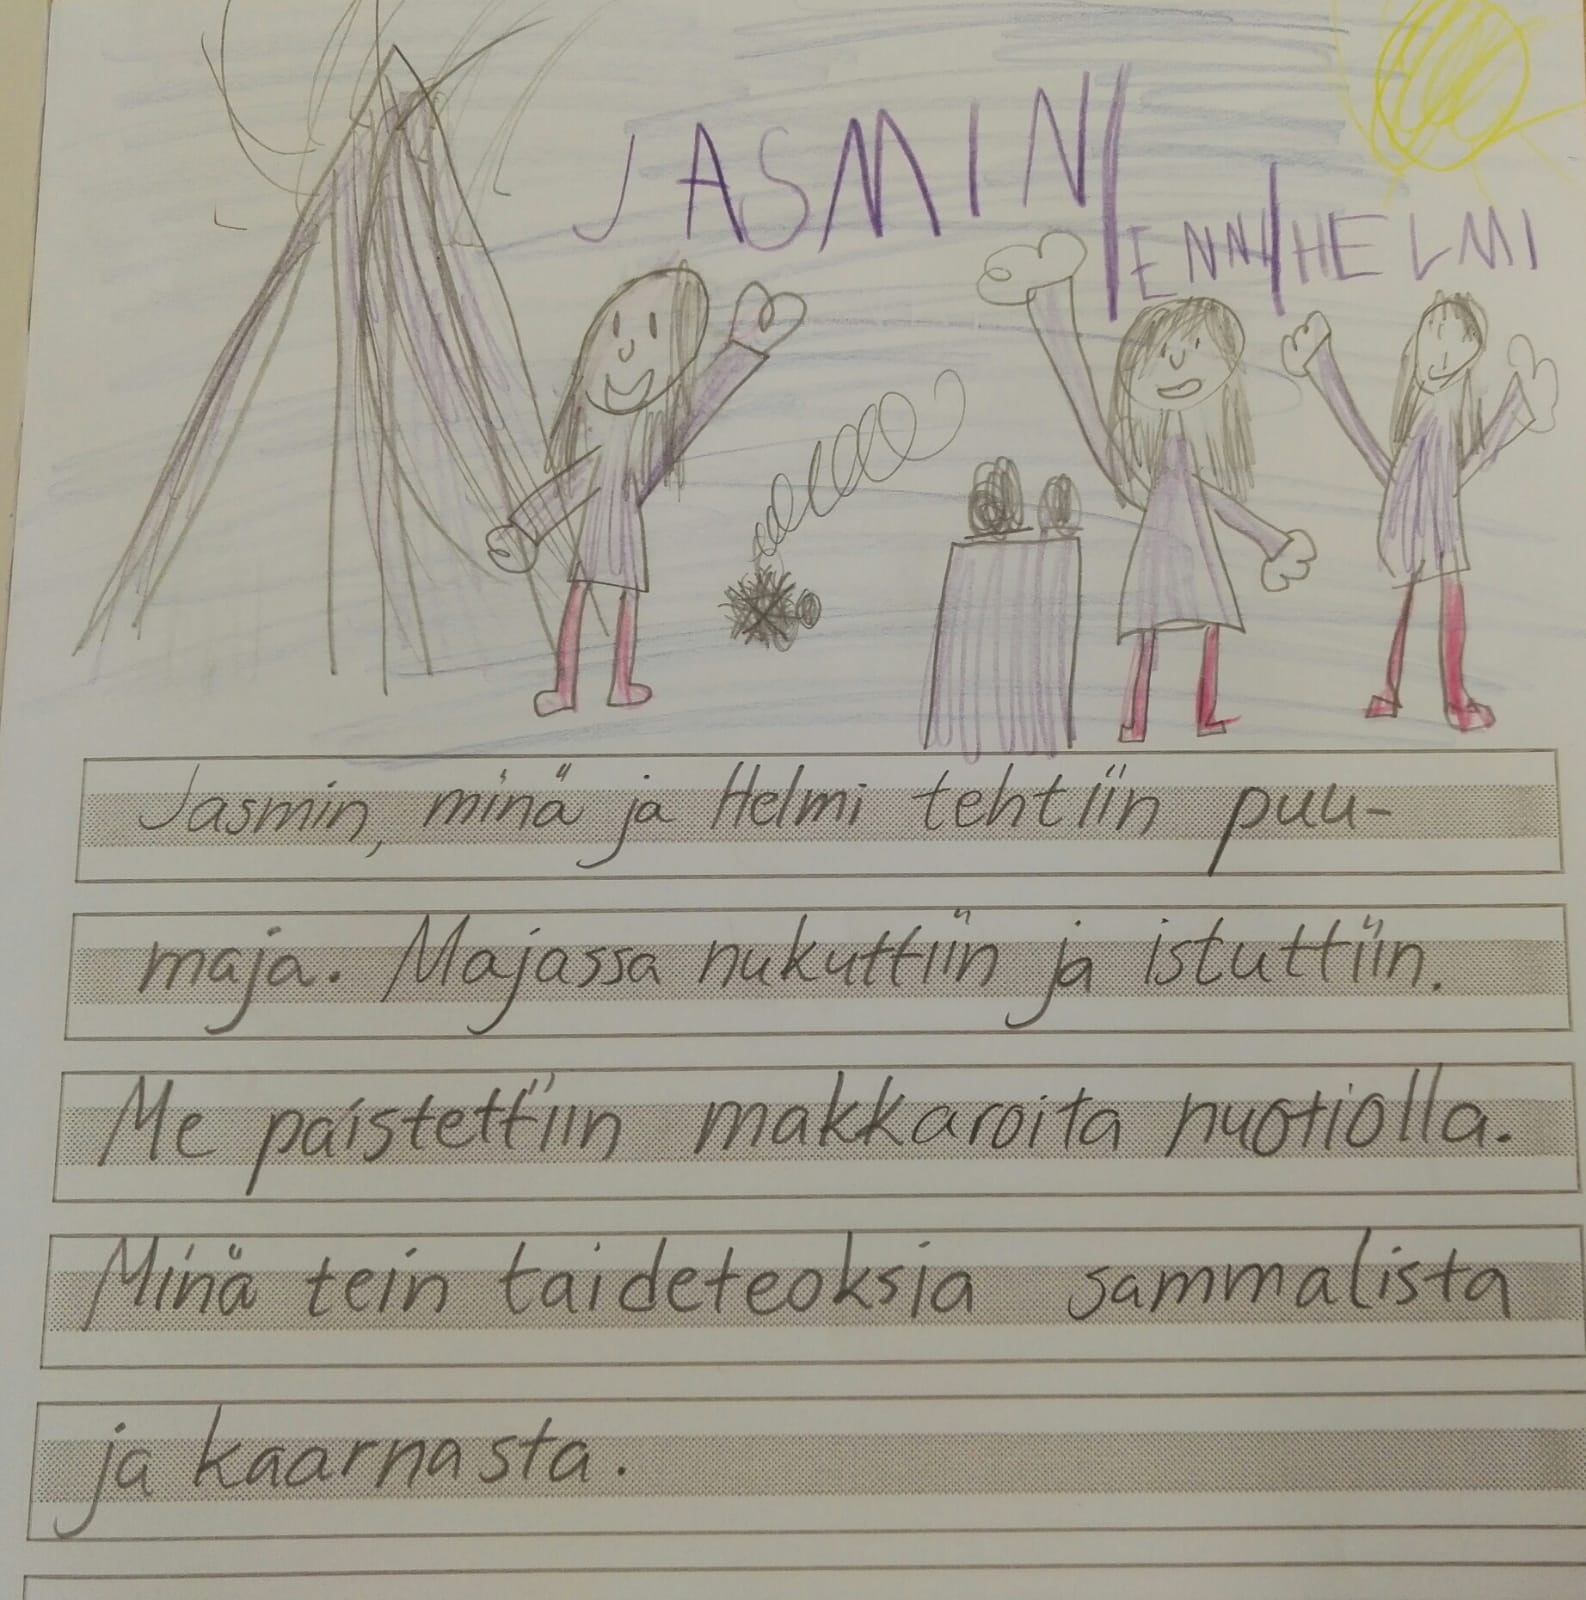 JASMIN ENNI HELMI
Jasmin, minä ja Helmi tehtiin puu-
maja. Majassa nukuttiin ja istuttiin.
Me paistettiin makkaroita nuotiolla.
Minä tein taideteoksia sammalista
ja kaarnasta.